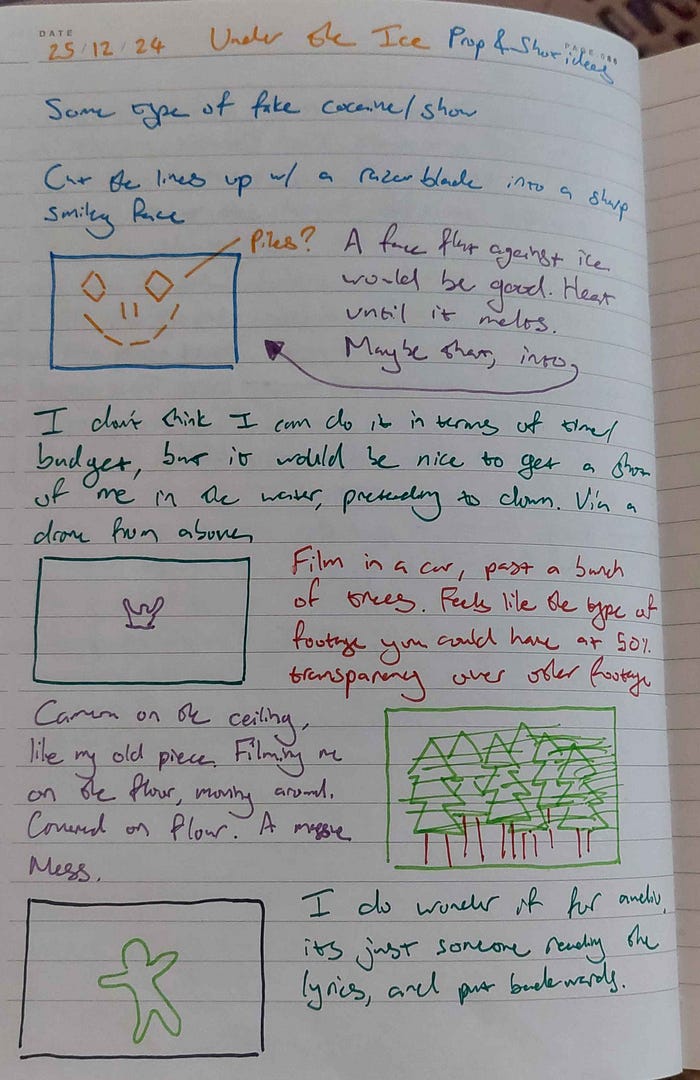 DATE
25/12/24 Under the Ice Prop & Shot ideas
PAGE
Some type of fake cocaine/snow
Cut the lines up w/ a razor blade into a sharp
smiley face
Piles?
A face flat against ice
would be good. Heat
until it melts.
Maybe intro
I don't think I can do it in terms of time/
budget, but it would be nice to get a shot
of me in the water, pretending to drown. Via a
drone from above
Film in a car, past a bunch
of trees. Feels like the type of
footage you could have at 50%
transparency over other footage
Camera on the ceiling,
like my old piece. Filming me
on the floor, moving around.
Covered in flour. A massive
Mess.
I do wonder if for audio,
its just someone reading the
lyrics, and put backwards.